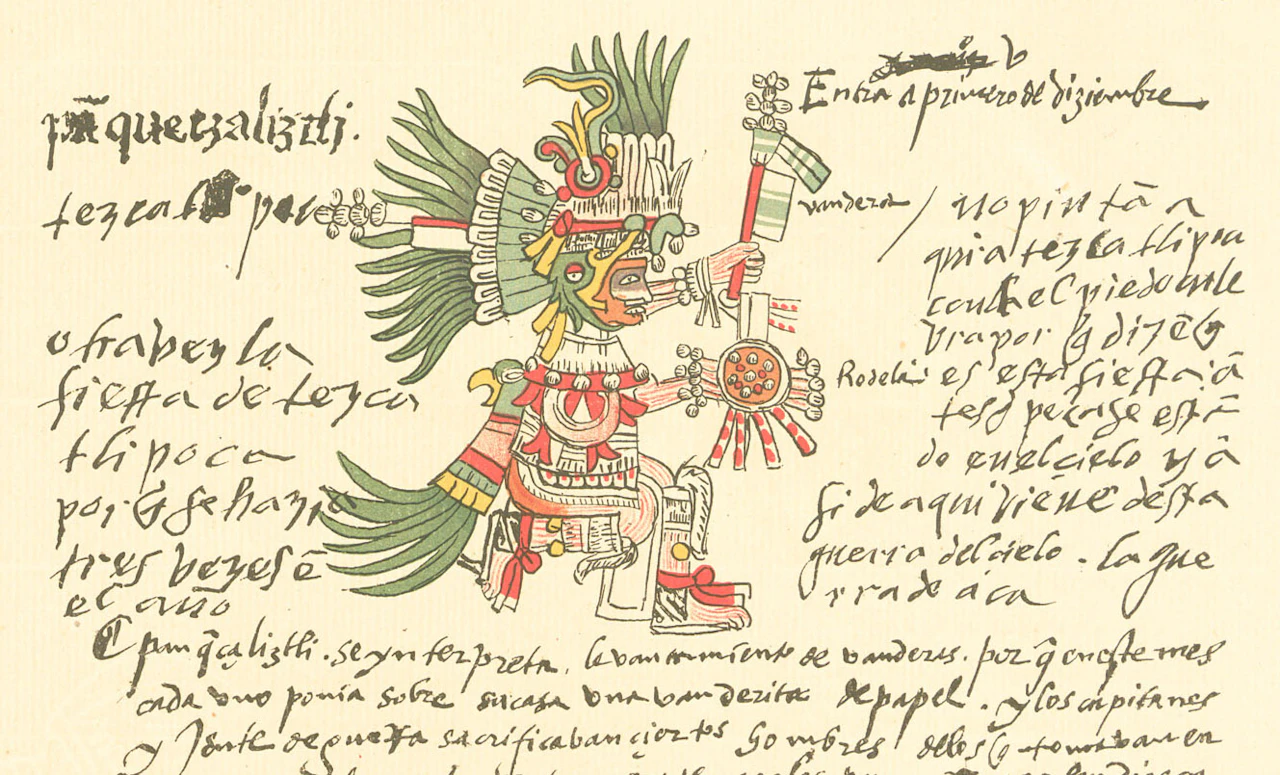 pā quetzaliztli.
tezcat poc
otra vez la
fiesta de tezca
tlipoca
por q̃ se hazia
tres vezes ē
el año
V
Entra a primero de diziembre
vandera
Rodela
no pintā a
qui a tezcatlipoca
con el pie
por q̃ dizē q̃
es esta fiesta ā
tes q̃ pecase estā
do en el cielo y ā
si de aqui viene desta
guerra del cielo . la gue
rra de aca
panq̃çaliztli . se ynterpreta . levantamiento de vanderas . por q̃ en este mes
cada uno ponia sobre su casa una vanderita de papel . y los capitanes
y Jente de guerra sacrificavan çiertos hombres de los q̃ tomavan en